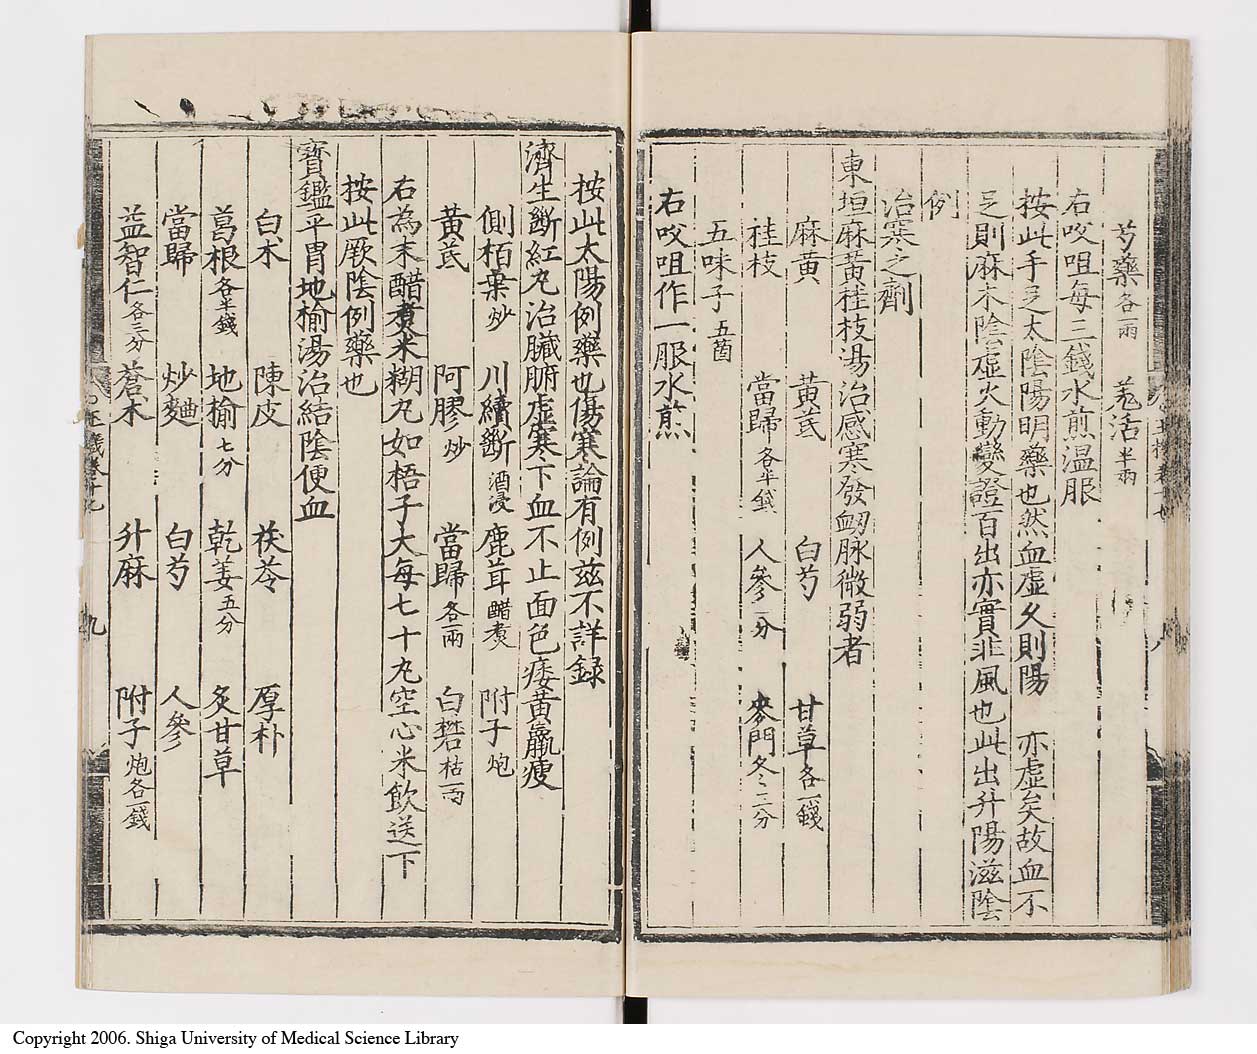 芍藥各一兩 羗活半兩
右㕮咀每三錢水煎溫服
按此手足太陰陽明藥也然血虛久則陽 亦虛矣故血不
足則麻木陰虛火動變證百出亦實非風也此出升陽滋陰
例
治寒之劑
東垣麻黃桂枝湯治感寒發衂脉微弱者
麻黃 黃芪 白芍 甘草各一錢
桂枝 當歸各半錢 人參一分 麥門冬二分
五味子五茴
右㕮咀作一服水煎
按此太陽例藥也傷寒論有例茲不詳録
濟生斷紅丸治臟腑虛寒下血不止面色痿黃羸瘦
側栢葉炒 川續斷酒浸 鹿茸醋煮 附子炮
黃芪 阿膠炒 當歸各一兩 白礬枯一兩
右為末醋煮米糊丸如梧子大每七十丸空心米飲送下
按此厥陰例藥也
寶鑑平胃地榆湯治結陰便血
白朮 陳皮 茯苓 厚朴
葛根各半錢 地榆七分 乾姜五分 炙甘草
當歸 炒麯 白芍 人參
益智仁各三分 蒼朮 升麻 附子炮各一錢
九
Copyright 2006. Shiga University of Medical Science Library